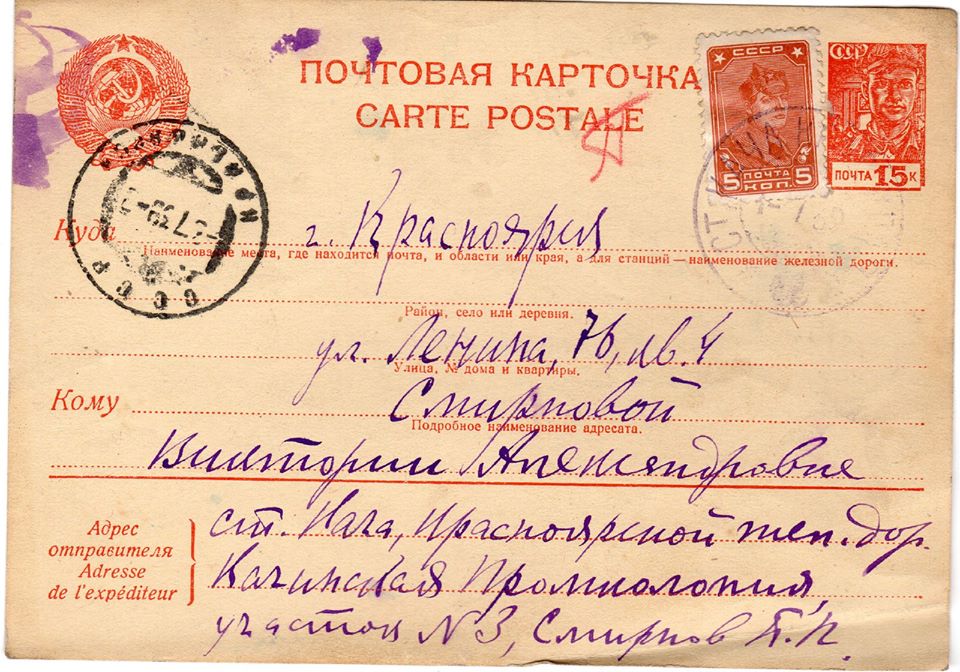 ПОЧТОВАЯ КАРТОЧКА
CARTE POSTALE
СССР
ПОЧТА
5 КОП. 5
СССР
ПОЧТА 15 К
СССР
Куда г. Красноярск
Наименование места, где находится почта, и области или края, а для станций — наименование железной дороги.
Район, село или деревня.
ул. Ленина, 76, кв. 4
Улица, № дома и квартиры.
Кому Смирновой
Подробное наименование адресата.
Виктории Александровне
Адрес отправителя
Adresse de l'expéditeur
ст. Кача, Красноярской жел. дор.
Качинская Промколония,
участок N 3, Смирнов